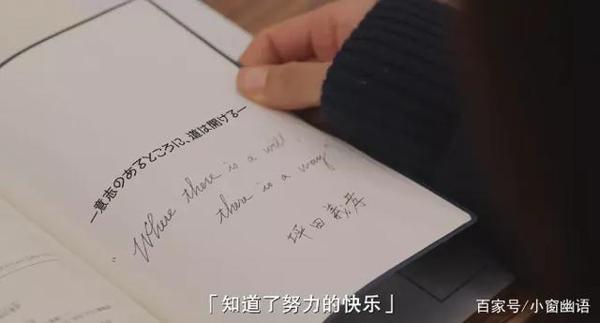 —意志のあるところに、道は開ける—
"Where there is a will,
there is a way"
坪田義彦
「知道了努力的快乐」
百家号/小窗幽语